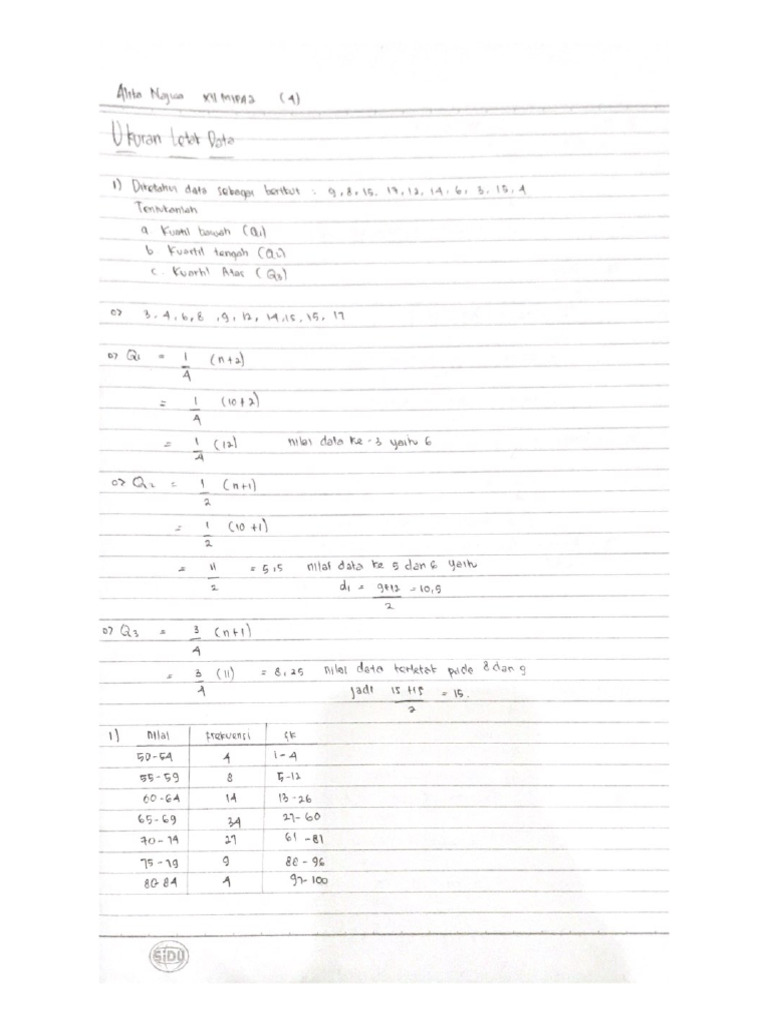 Alita Najwa XII MIPA 2 (4)
Ukuran Letak Data
1) Diketahui data sebagai berikut : 9, 8, 15, 17, 12, 14, 6, 3, 15, 4
Tentukanlah
a Kuartil bawah (Q1)
b Kuartil tengah (Q2)
c. Kuartil Atas (Q3)
=> 3, 4, 6, 8, 9, 12, 14, 15, 15, 17
=> Q1 = 1/4 (n+2)
= 1/4 (10+2)
= 1/4 (12) nilai data ke-3 yaitu 6
=> Q2 = 1/2 (n+1)
= 1/2 (10+1)
= 11/2 = 5,5 nilai data ke 5 dan 6 yaitu
d1 = 9+12/2 = 10,5
=> Q3 = 3/4 (n+1)
= 3/4 (11) = 8,25 nilai data terletak pada 8 dan 9
jadi 15+15/2 = 15.
1) Nilai frekuensi fk
50-54 4 1-4
55-59 8 5-12
60-64 14 13-26
65-69 34 27-60
70-74 27 61-81
75-79 9 88-96
80-84 4 97-100
SIDU